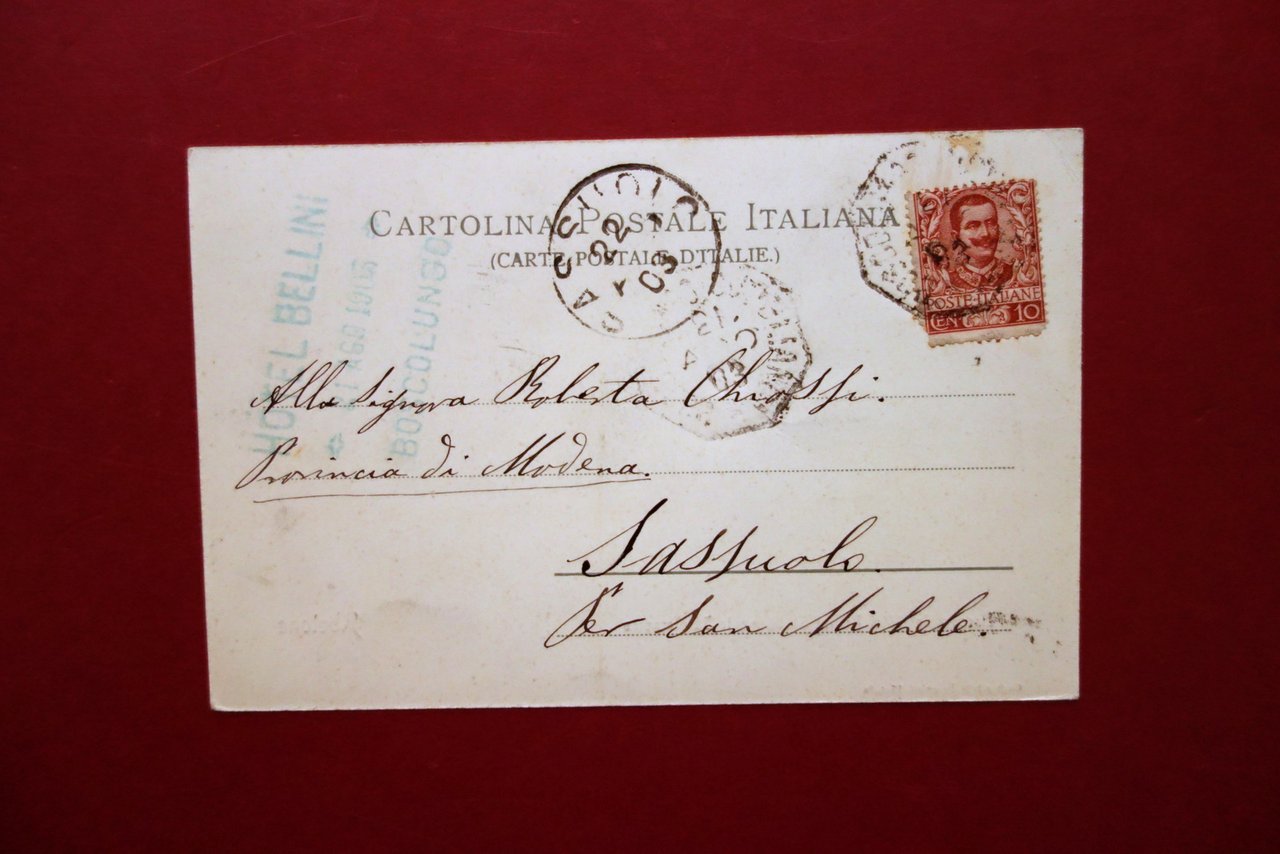 CARTOLINA POSTALE ITALIANA
(CARTE POSTALE D'ITALIE.)
SASSUOLO
22
03
POSTE ITALIANE
CEN 10
HÔTEL BELLINI
AGO
BOSCOLUNGO
Alla Signora Roberta Chiossi.
Provincia di Modena.
Sassuolo.
Per San Michele.